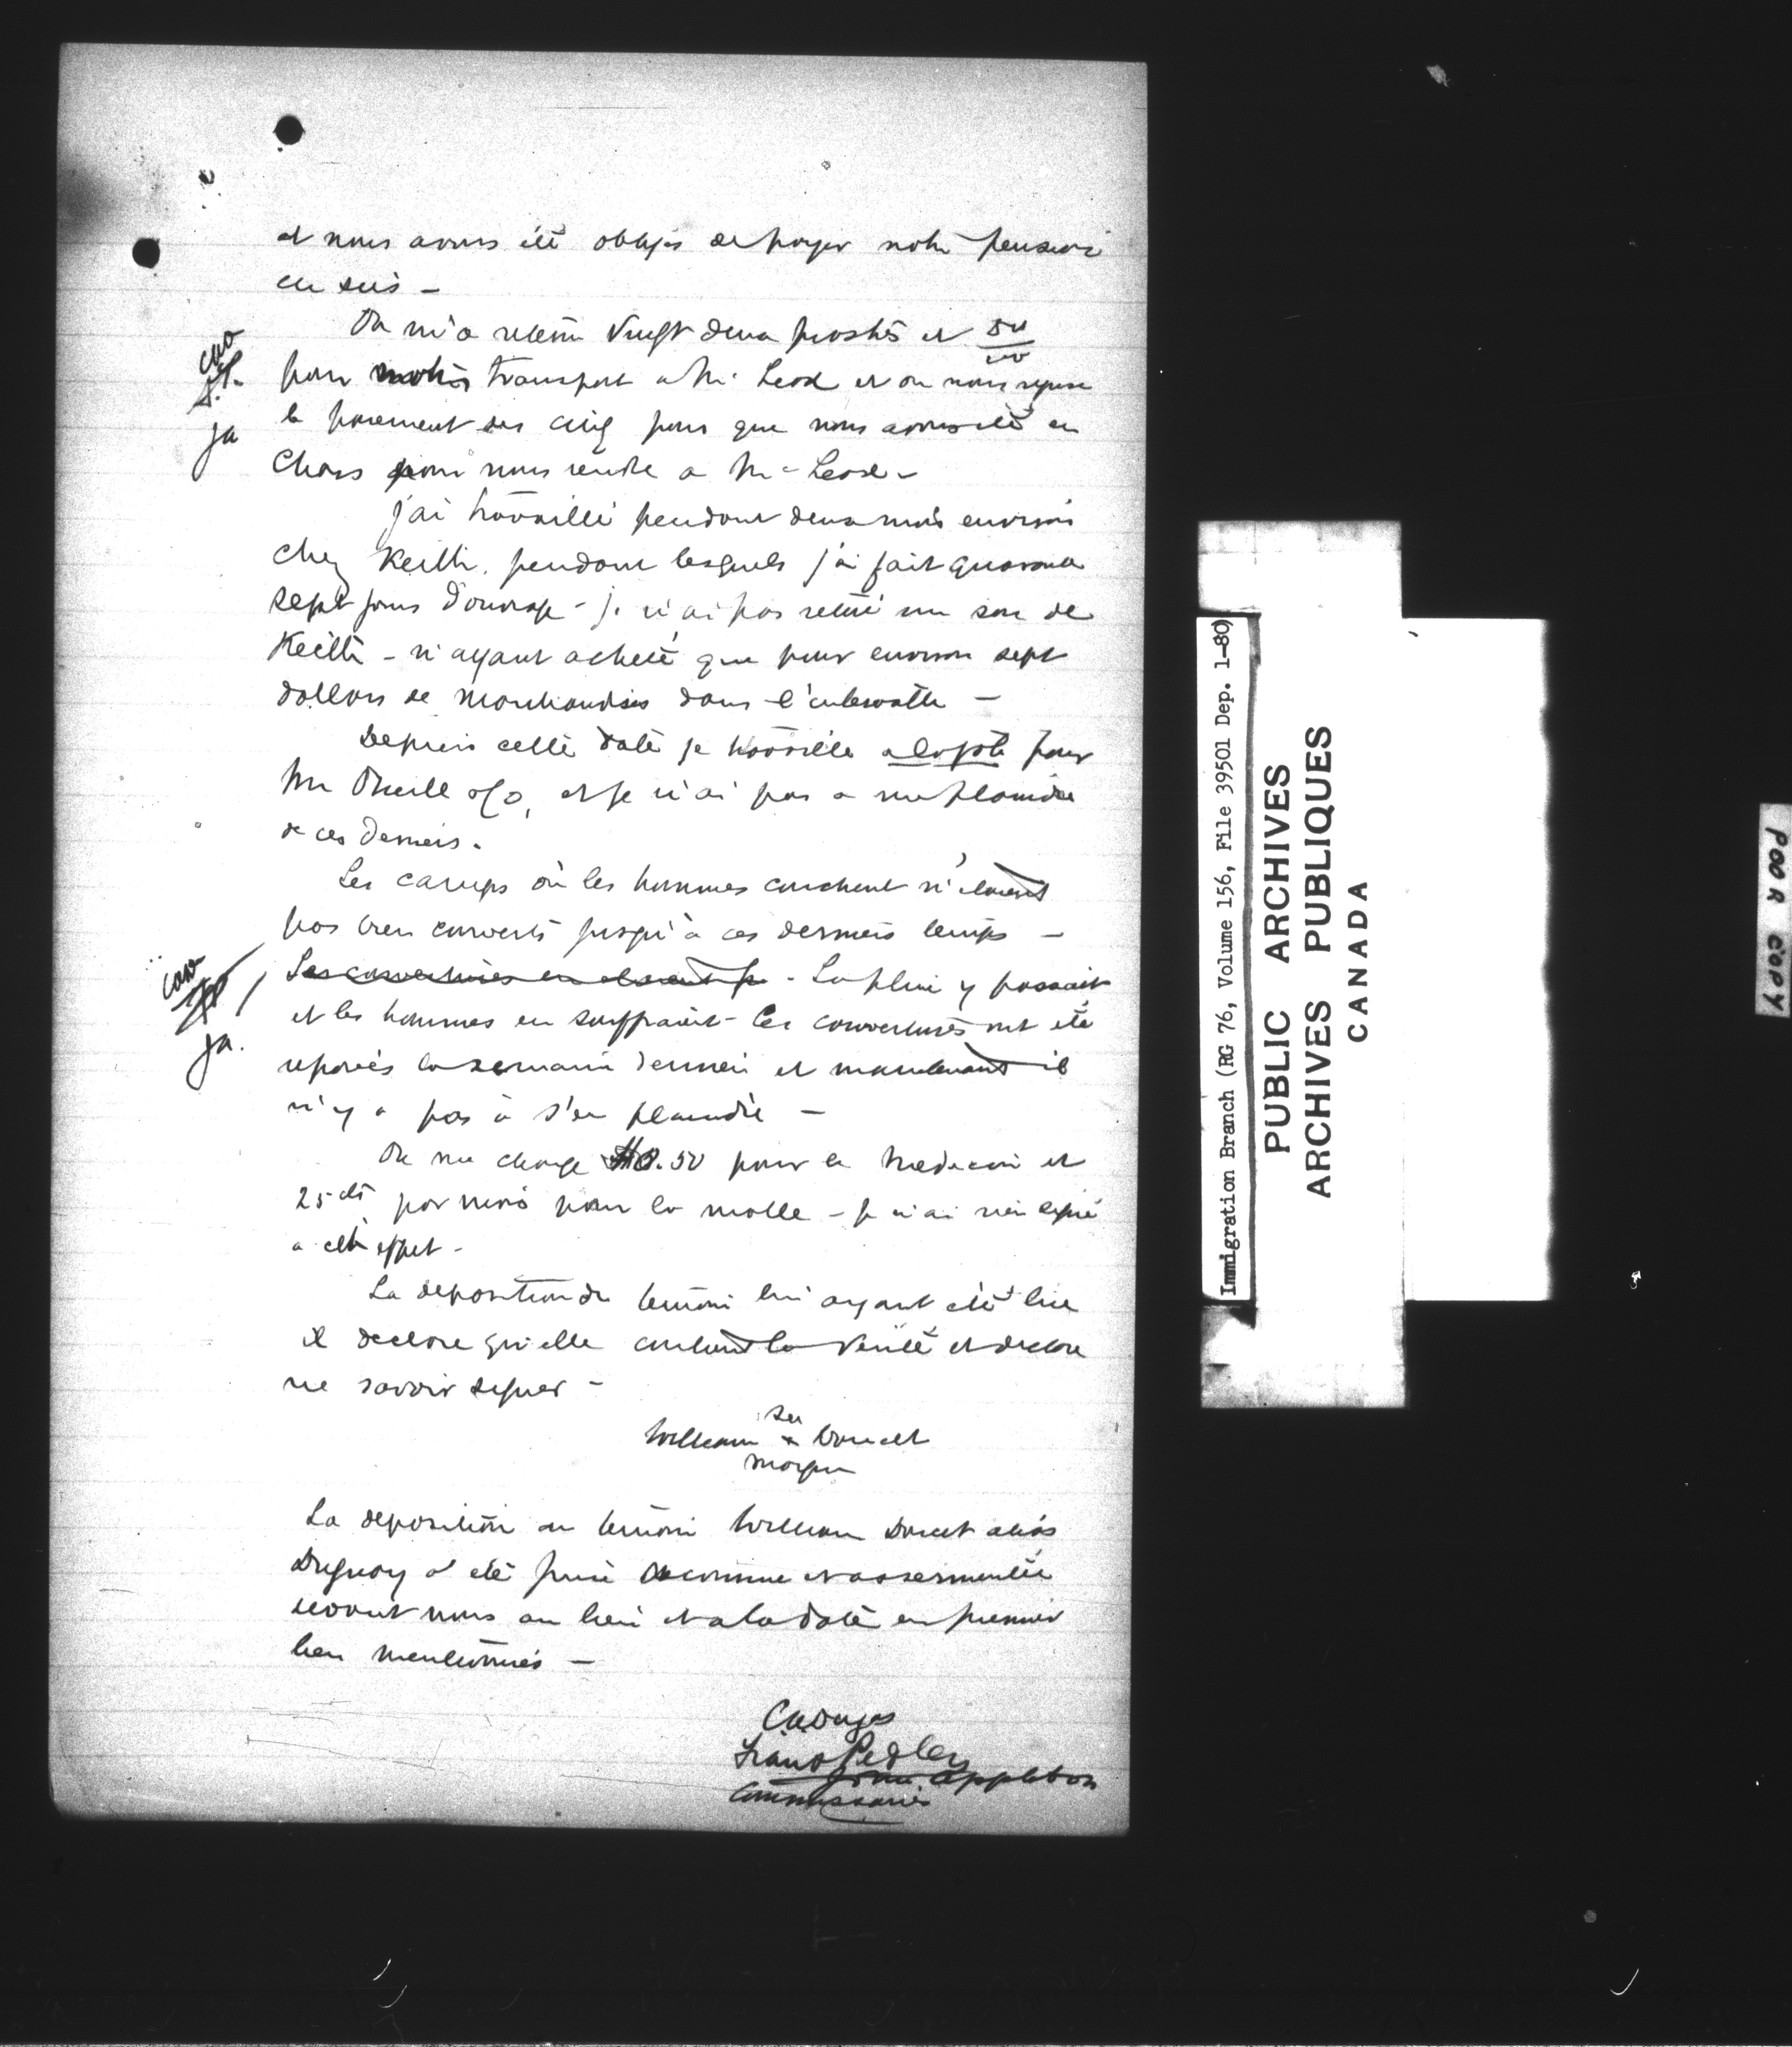 et nous avons été obligés de payer notre pension
en sus -
On m'a retenu vingt deux piastres et 50/100
cad
F.P.
ja
pour notre transport a Mc Leod et on nous refuse
le paiement des cinq jours que nous avons été en
chars pour nous rendre a Mc Leod -
j'ai travaillé pendant deux mois environ
chez Keith, pendant lesquels j'ai fait quarante
sept jours d'ouvrage - je n'ai pas retiré un sou de
Keith - n'ayant acheté que pour environ sept
dollars de marchandises dans l'intervalle -
Depuis cette date je travaille a la job pour
Mr Oneill & Co, et je n'ai pas a me plaindre
de ces derniers.
Les camps où les hommes couchent n'étaient
pas bien couverts jusqu'à ces derniers temps -
cad
FP
ja.
Les couvertures en étaient - La pluie y passait
et les hommes en souffraient - Les couvertures ont été
reparées la semaine derniere et maintenant il
n'y a pas à s'en plaindre -
On me charge $0.50 pour le medecin et
25 cts par mois pour la malle - je n'ai rien signé
a cet effet -
La deposition du temoin lui ayant été lue
il declare qu'elle contient la verité et declare
ne savoir signer -
sa
William x Doucet
marque
La deposition du temoin William Doucet alias
Duguay a été prise reconnue et assermentée
devant nous au lieu et a la date en premier
lieu mentionnés -
CaDugas
Frank Pedley
John Appleton
Commissaires
Immigration Branch (RG 76, Volume 156, File 39501 Dep. 1-80)
PUBLIC ARCHIVES
ARCHIVES PUBLIQUES
CANADA
POOR COPY